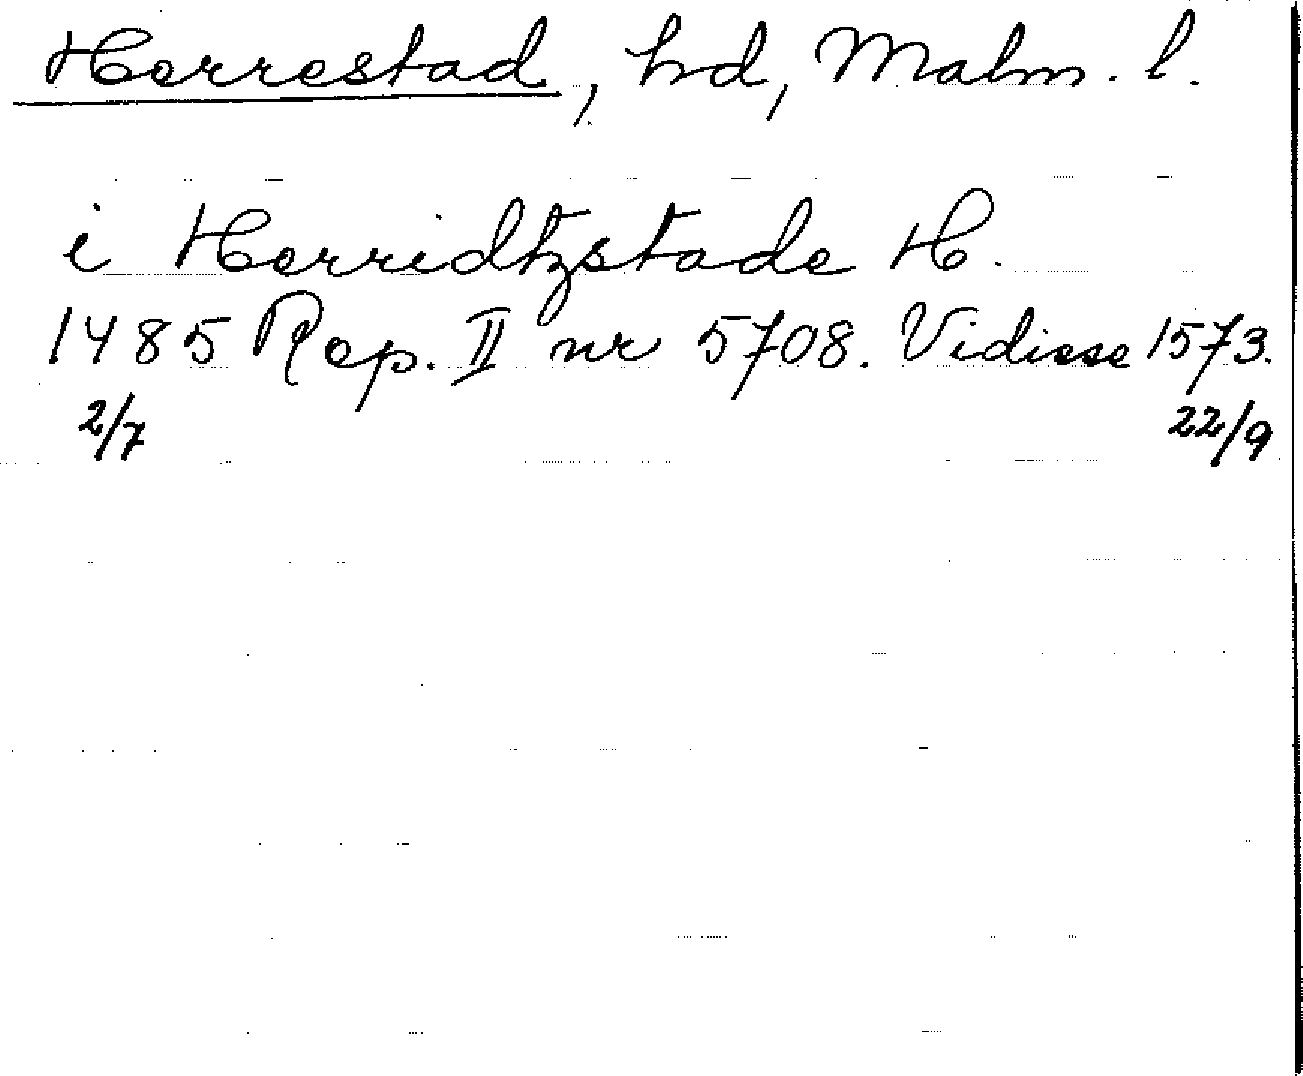 Herrestad, hd, Malm. l.
i Herridtzstade H.
1485 Rep. II nr 5708. Vidisse 1573.
2/7 22/9